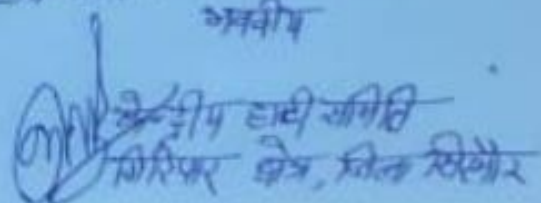 भवदीय
केन्द्रीय हाटी समिति
गिरिपार क्षेत्र, जिला सिरमौर